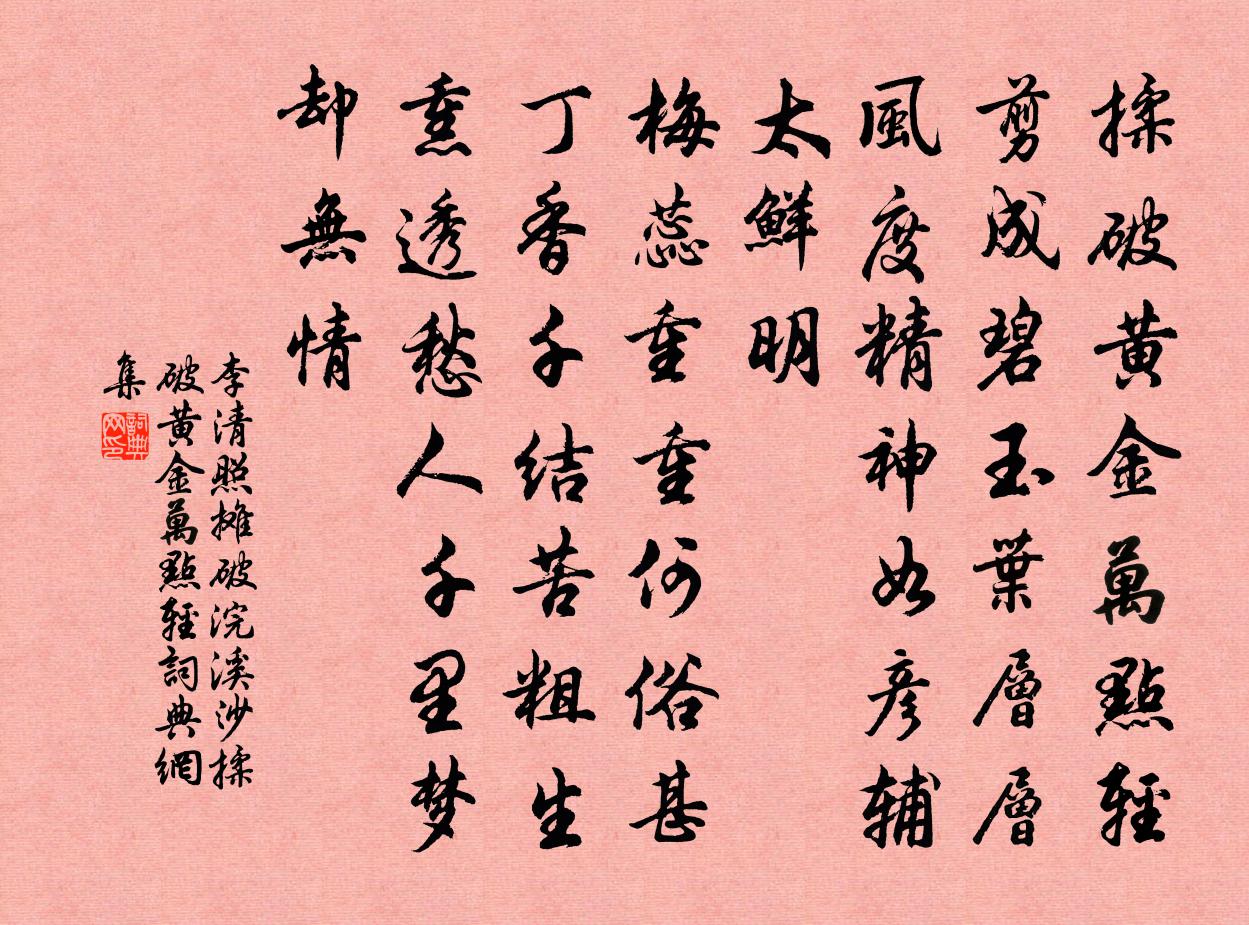 揉破黃金萬點輕
剪成碧玉葉層層
風度精神如彥輔
太鮮明
梅蕊重重何俗甚
丁香千结苦粗生
熏透愁人千里梦
却無情
李清照攤破浣溪沙揉
破黃金萬點輕詞典網
集
詞典网印